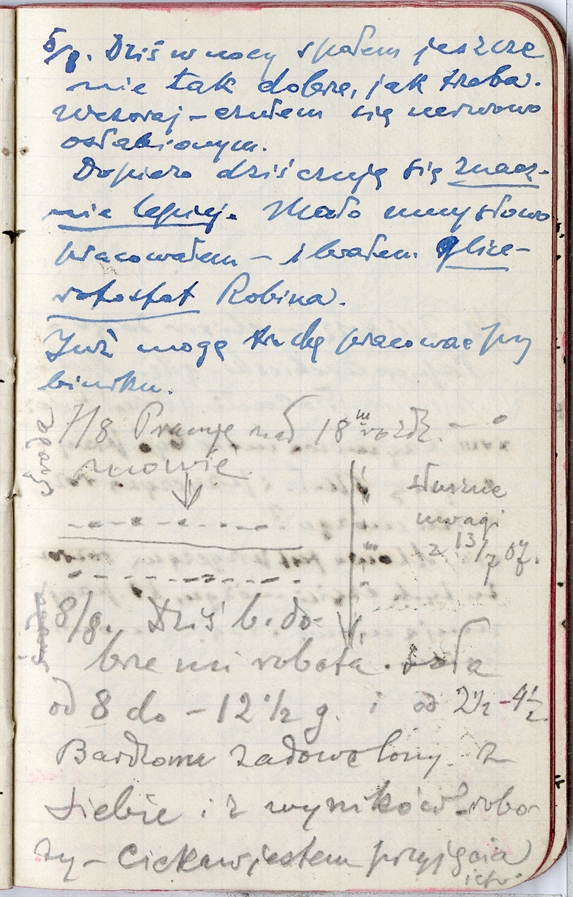 5/8. Dziś w nocy spałem jeszcze
nie tak dobrze, jak trzeba.
Wczoraj – czułem się nerwowo
osłabionym.
Dopiero dziś czuję się znacz-
nie lepiej. Mało umysłowo
pracowałem – i brałem glice-
rofosfat Robina.
Już mogę trochę pracować przy
biurku.
7/8 Pracuję nad 18 rozdz. – o
mowie.
słuszne
uwagi
z 13/7 07.
8/8. Dziś b. do-
brze mi robota szła
od 8 do – 12 1/2 g. i od 2 1/2 – 4 1/2.
zadowolony z
siebie i z wyników robo-
ty – Ciekaw jestem przyjęcia